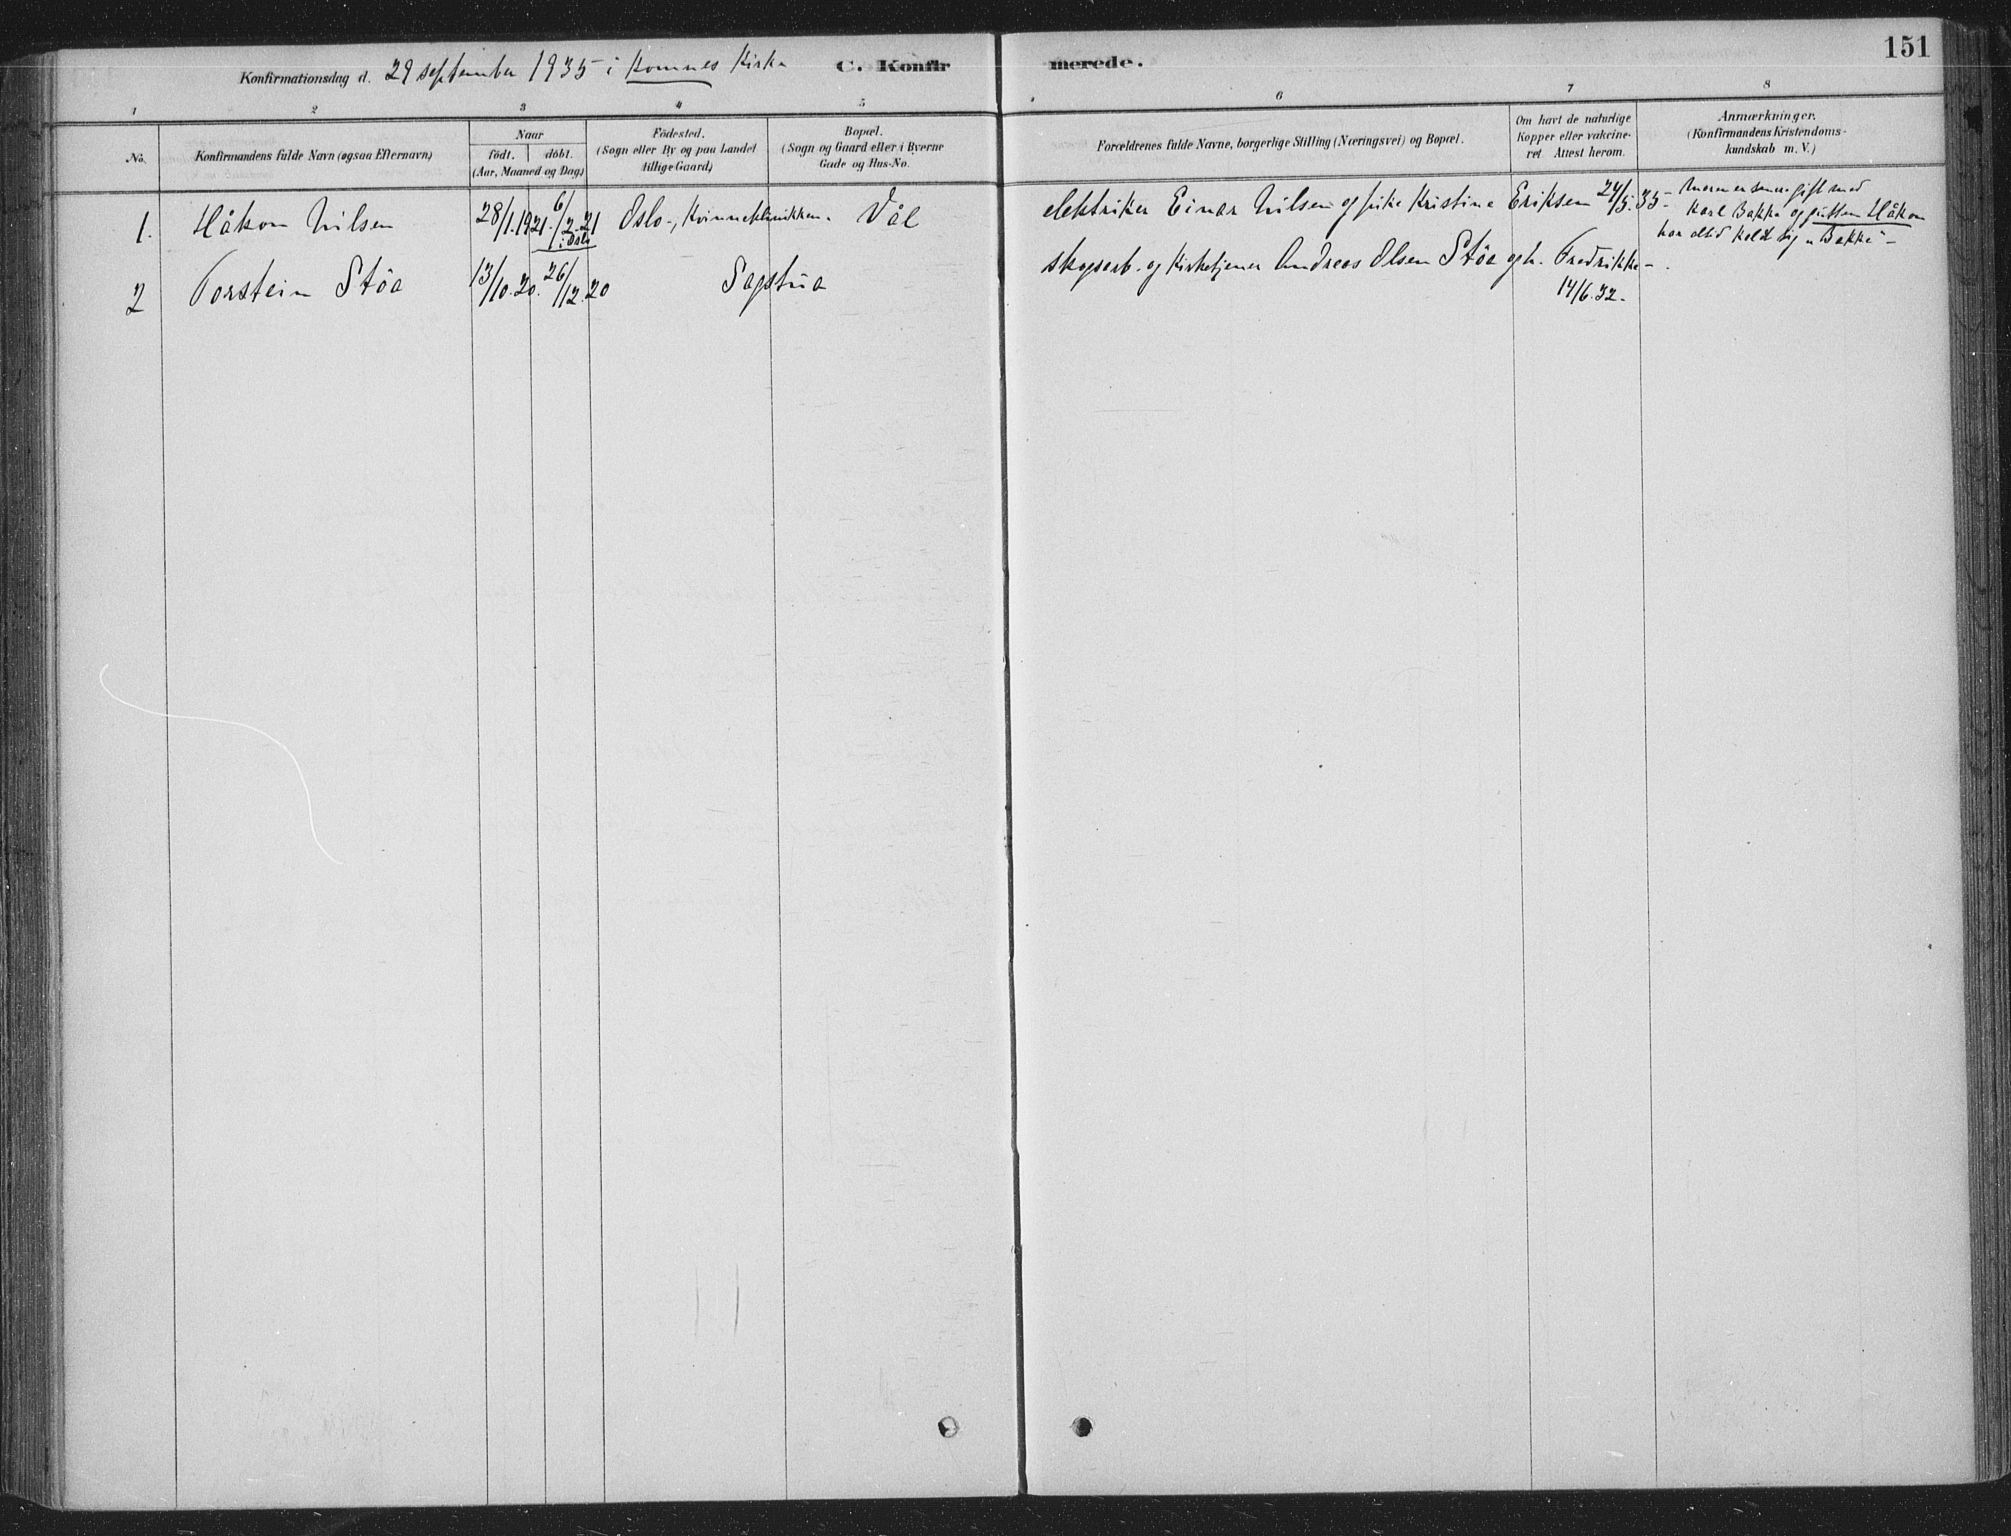 151
Konfirmationsdag d. 29 september 1935 i Komnes Kirke C. Konfir merede.
1 2 3 4 5 6 7 8
No. Konfirmandens fulde Navn (ogsaa Efternavn) Naar født. døbt. (Aar, Maaned og Dag) Fødested. (Sogn eller By og paa Landet tillige Gaard) Bopæl. (Sogn og Gaard eller i Byerne Gade og Hus-No. Forældrenes fulde Navne, borgerlige Stilling (Næringsvei) og Bopæl. Om havt de naturlige Kopper eller vakcineret Attest herom. Anmærkninger. (Konfirmandens Kristendomskundskab m. V.)
1. Håkon Nilsen 28/1.1921. 6/2.21 i Oslo Oslo-, Kvinneklinikken. Vål elektriker Einar Nilsen og pike Kristine Eriksen 24/5.35- Moren er senere gift med
Karl Bakke og gutten Håkon
har altid kaldt sig "Bakke"-
2 Torstein Stöa 13/10.20. 26/12.20 Sagstua skogsarb. og Kirketjener Andreas Olsen Stöa og h. Fredrikke-.
14/6.32-